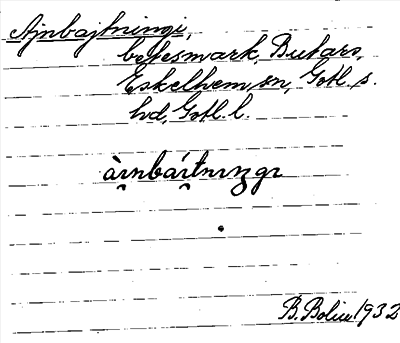 Ajnbajtningi,
betesmark, Butars,
Eskelhem, sn, Gotl. s.
hd, Gotl. l.
àı̯nbáı̯tnıŋgı
B. Bolin 1932